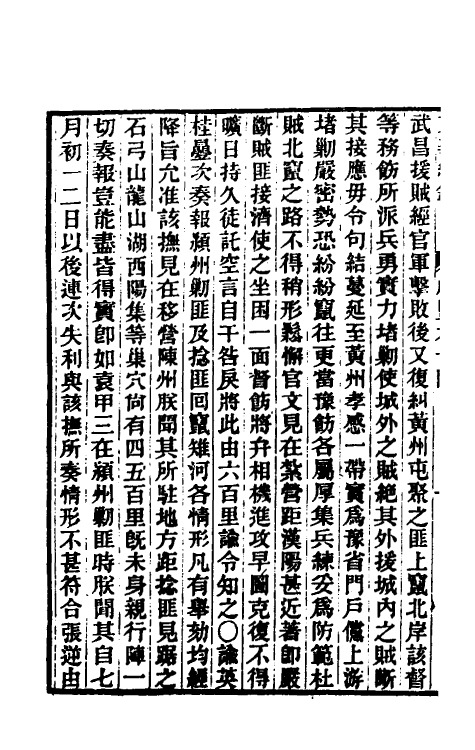 武昌援賊經官軍擊敗後又復糾黃州屯聚之匪上竄北岸該督
等務飭所派兵勇實力堵勦使城外之賊絕其外援城內之賊斷
其接應毋令句結蔓延至黃州孝感一帶實爲豫省門戶儻上游
堵勦嚴密勢恐紛紛竄往更當豫飭各屬厚集兵練妥爲防範杜
賊北竄之路不得稍形鬆懈官文見在紮營距漢陽甚近著卽嚴
斷賊匪接濟使之坐困一面督飭將弁相機進攻早圖克復不得
曠日持久徒託空言自干咎戾將此由六百里諭令知之〇諭英
桂曡次奏報潁州勦匪及捻匪回竄雉河各情形凡有舉劾均經
降旨允准該撫見在移營陳州朕聞其所駐地方距捻匪見踞之
石弓山龍山湖西陽集等巢穴尙有四五百里旣未身親行陣一
切奏報豈能盡皆得實卽如袁甲三在潁州勦匪時朕聞其自七
月初一二日以後連次失利與該撫所奏情形不甚符合張逆由